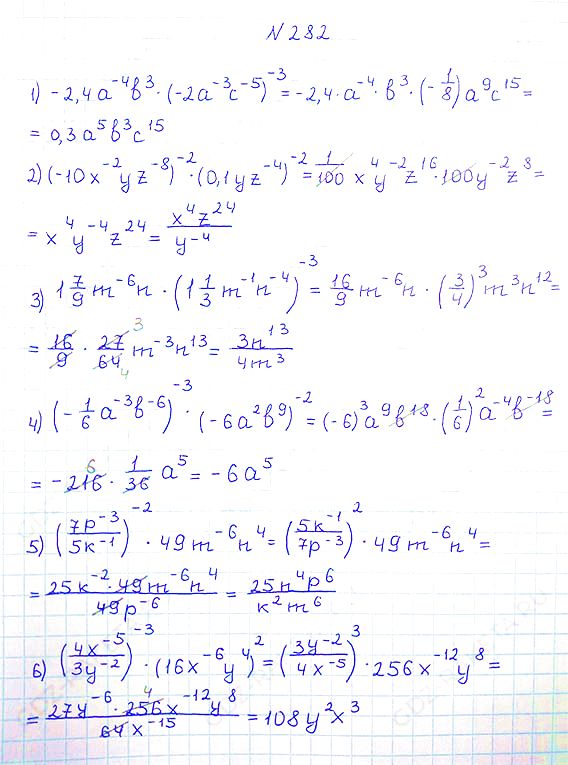 N 282
1) -2,4a⁻⁴b³ · (-2a⁻³c⁻⁵)⁻³ = -2,4 · a⁻⁴ · b³ · (-1/8)a⁹c¹⁵ =
= 0,3a⁵b³c¹⁵
2) (-10x⁻²yz⁻⁸)⁻² · (0,1yz⁻⁴)⁻² = 1/100 x⁴y⁻²z¹⁶ · 100y⁻²z⁸ =
= x⁴y⁻⁴z²⁴ = x⁴z²⁴/y⁻⁴
3) 1 7/9 m⁻⁶n · (1 1/3 m⁻¹n⁻⁴)⁻³ = 16/9 m⁻⁶n · (3/4)³m³n¹² =
= 16/9 · 27/64 3 4 m⁻³n¹³ = 3n¹³/4m³
4) (-1/6 a⁻³b⁻⁶)⁻³ · (-6a²b⁹)⁻² = (-6)³a⁹b¹⁸ · (1/6)²a⁻⁴b⁻¹⁸ =
= -216 6 · 1/36 a⁵ = -6a⁵
5) (7p⁻³/5k⁻¹)⁻² · 49m⁻⁶n⁴ = (5k⁻¹/7p⁻³)² · 49m⁻⁶n⁴ =
= 25k⁻² · 49m⁻⁶n⁴/49p⁻⁶ = 25n⁴p⁶/k²m⁶
6) (4x⁻⁵/3y⁻²)⁻³ · (16x⁻⁶y⁴)² = (3y⁻²/4x⁻⁵)³ · 256x⁻¹²y⁸ =
= 27y⁻⁶ · 256 4 x⁻¹²y⁸/64x⁻¹⁵ = 108y²x³